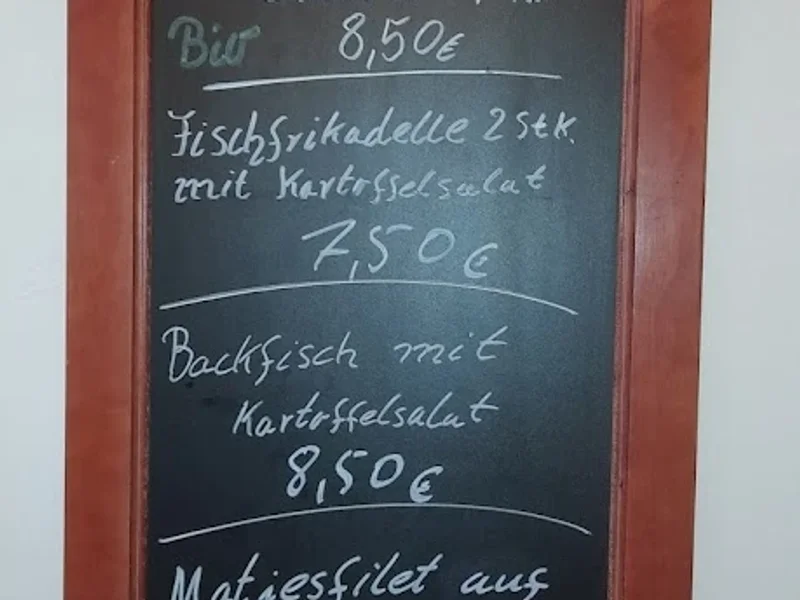 Bio 8,50€
Fischfrikadelle 2 Stk.
mit Kartoffelsalat
7,50€
Backfisch mit
Kartoffelsalat
8,50€
Matjesfilet auf